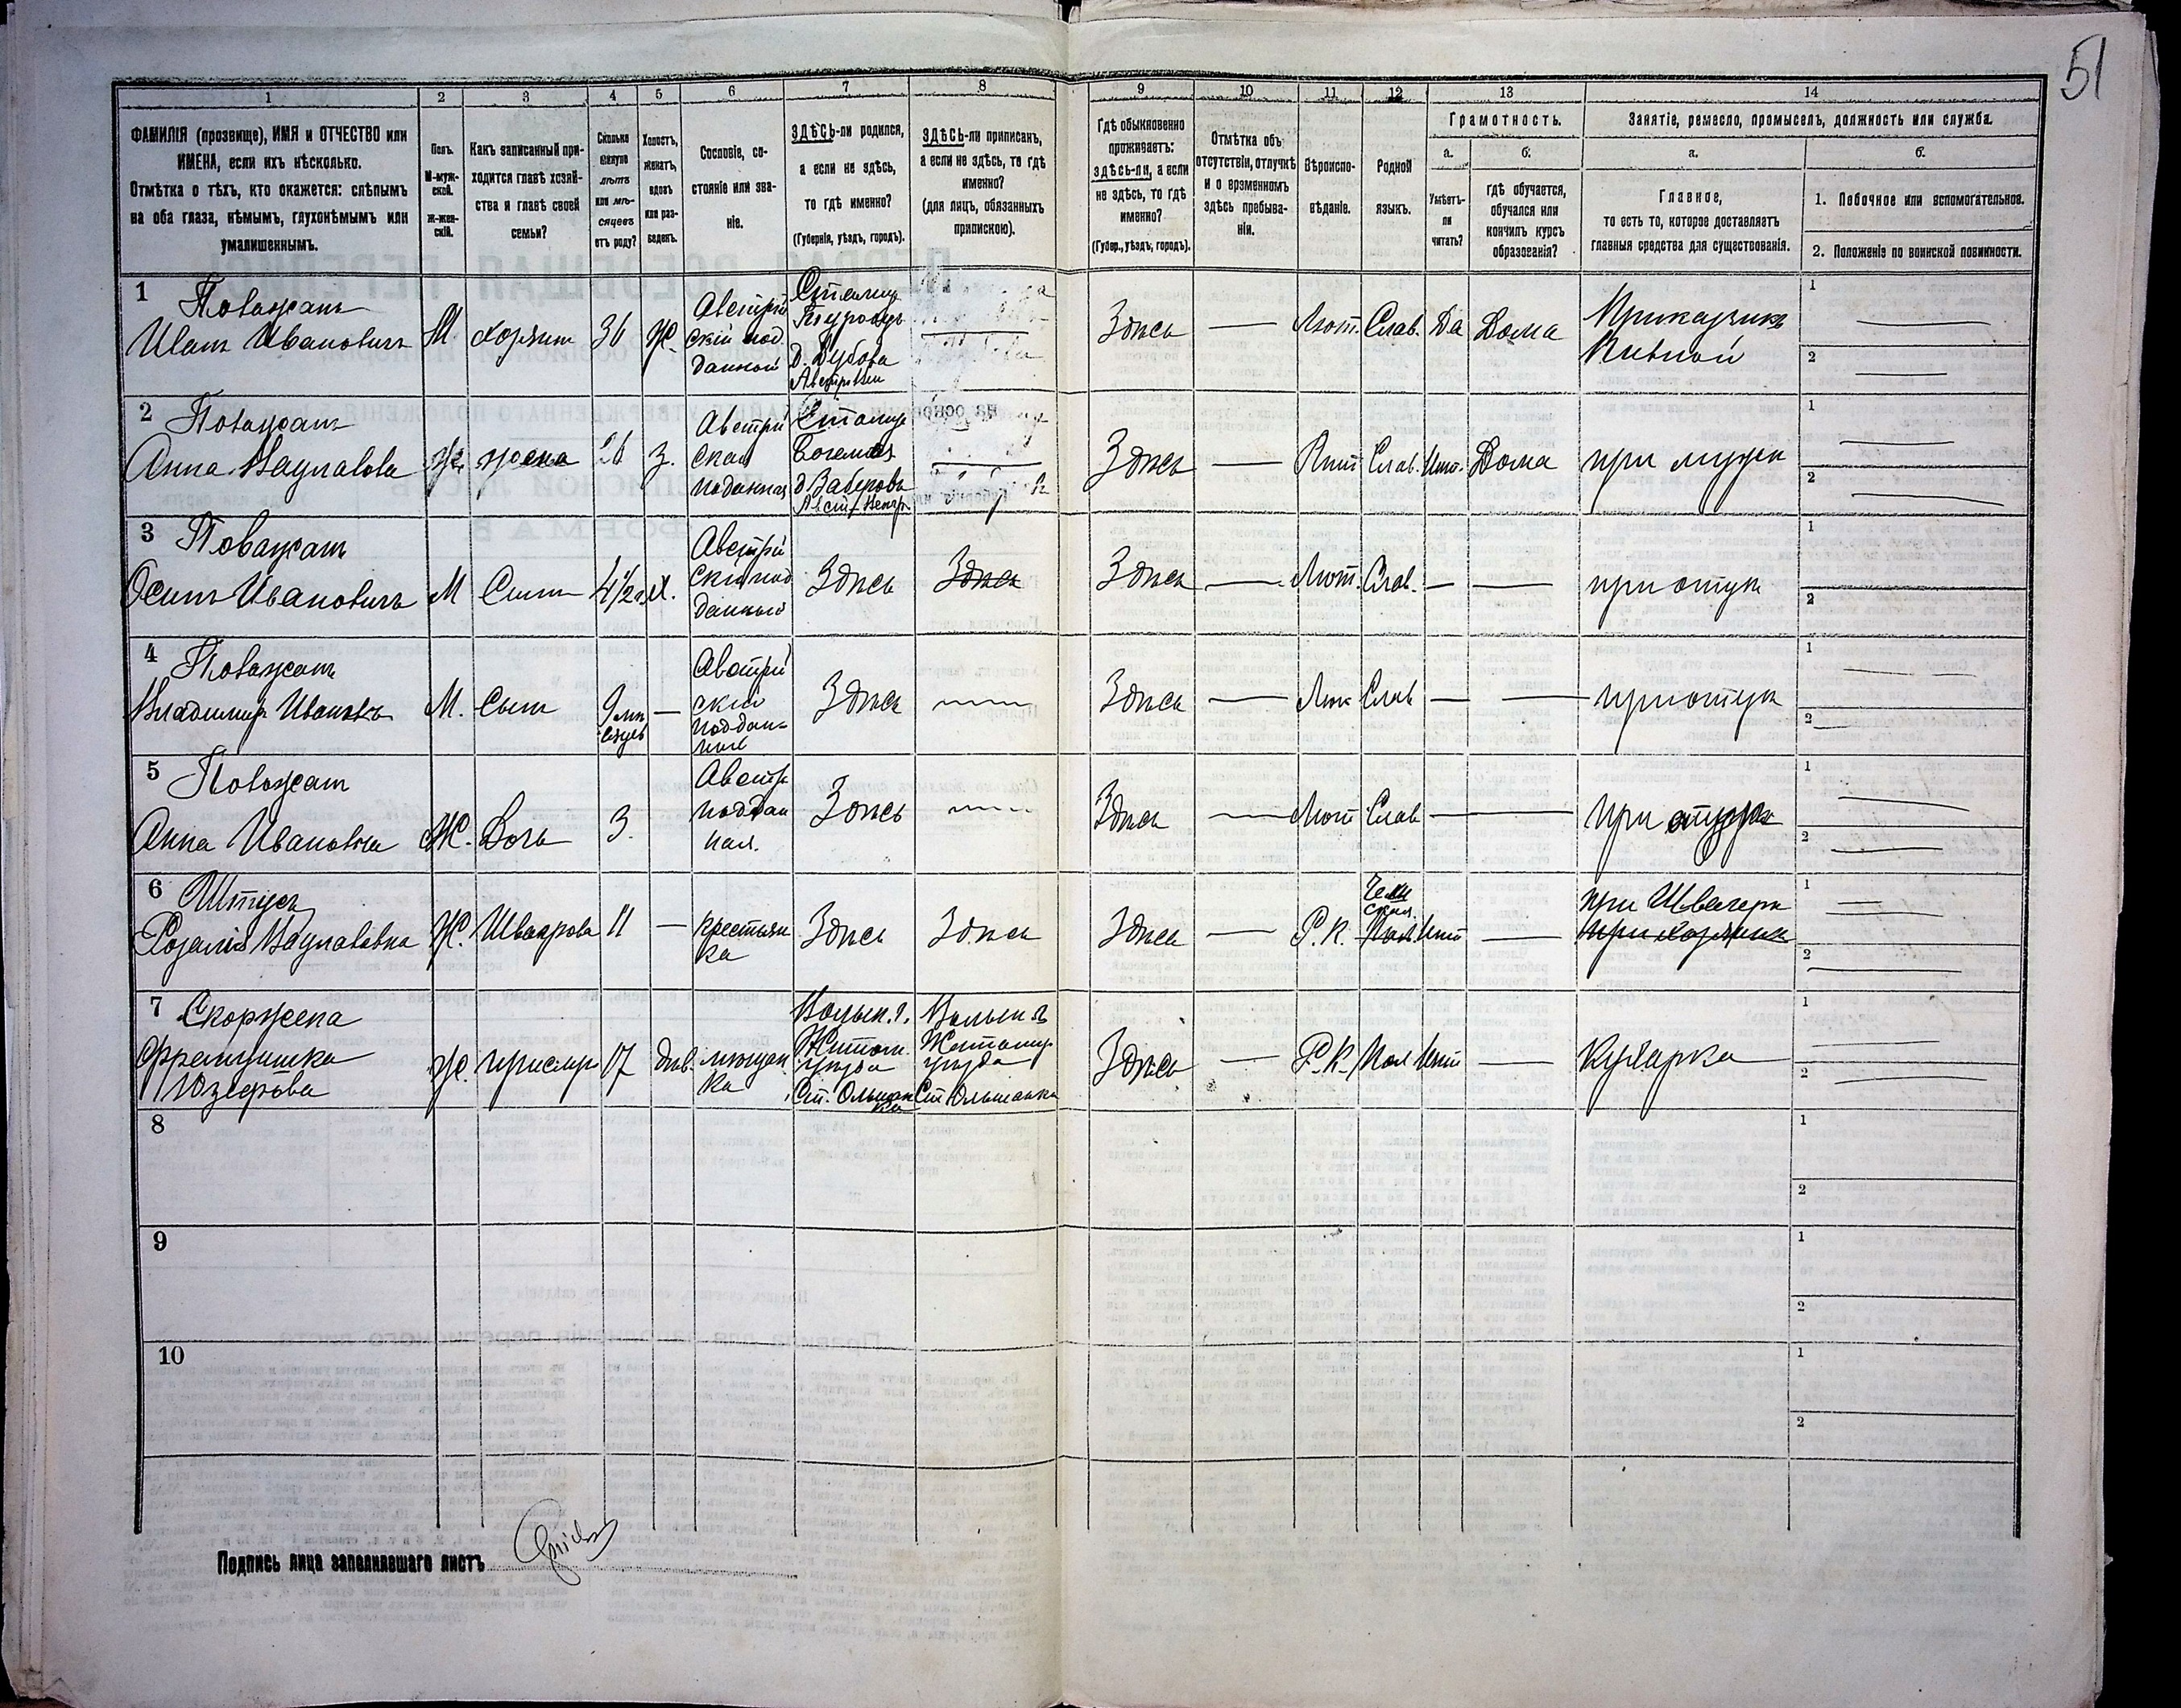 51
1 2 3 4 5 6 7 8 9 10 11 12 13 14
ФАМИЛІЯ (прозвище), ИМЯ и ОТЧЕСТВО или
ИМЕНА, если ихъ нѣсколько.
Отмѣтка о тѣхъ, кто окажется: слѣпымъ
на оба глаза, нѣмымъ, глухонѣмымъ или
умалишеннымъ.
Полъ.
М-муж-
ской.
Ж-жен-
скій.
Какъ записанный при-
ходится главѣ хозяй-
ства и главѣ своей
семьи?
Сколько
минуло
лѣтъ
или мѣ-
сяцевъ
отъ роду?
Холостъ,
женатъ,
вдовъ
или раз-
веденъ.
Сословіе, со-
стояніе или зва-
ніе.
ЗДѢСЬ-ли родился,
а если не здѣсь,
то гдѣ именно?
(Губернія, уѣздъ, городъ).
ЗДѢСЬ-ли приписанъ,
а если не здѣсь, то гдѣ
именно?
(для лицъ, обязанныхъ
припискою).
Гдѣ обыкновенно
проживаетъ:
здѣсь-ли, а если
не здѣсь, то гдѣ
именно?
(Губер., уѣздъ, городъ).
Отмѣтка объ
отсутствіи, отлучкѣ
и о временномъ
здѣсь пребыва-
ніи.
Вѣроиспо-
вѣданіе.
Родной
языкъ.
Грамотность.
а.
Умѣетъ-
ли
читать?
б.
гдѣ обучается,
обучался или
кончилъ курсъ
образованія?
Занятіе, ремесло, промыселъ, должность или служба.
а.
Главное,
то есть то, которое доставляетъ
главныя средства для существованія.
б.
1. Побочное или вспомогательное.
2. Положеніе по воинской повинности.
1 Поважанъ
Иванъ Ивановичъ М хозяинъ 36 Ж.
Австрій
скій под
данный
д. Дубова
Здѣсь — Лют. Слав. Да Дома
Приказчикъ
Пивной
1
2
2 Поважанъ
Анна Вацлавова Ж. жена 26 З.
Австрій
ская
поданная
Богемія
Здѣсь — Слав. Дома при мужѣ
1
2
3 Поважанъ
Осипъ Ивановичъ М Сынъ 4½
Австрій
скій под
данный
Здѣсь Здѣсь Здѣсь — Лют. Слав. — — при отцѣ
1
2
4 Поважанъ
Владимиръ М. Сынъ 9 мѣ
сяцевъ —
Австрій
скій
поддан-
ный
Здѣсь Здѣсь — Слав — — при отцѣ
1
2
5 Поважанъ
Анна Ивановна Ж. Дочь 3
поддан
ная.
Здѣсь Здѣсь — Лют Слав — — при отцѣ
1
2
6
Розалія Вацлавовна Ж. 11 —
крестьян
ка
Здѣсь Здѣсь Здѣсь — Р. К.
Чеш
ская
—
при Швагерѣ
при хозяинѣ
1
2
7 Скоржена
Францишка
Юзефова Ж. 17 дѣв.
мѣщан
ка
Волын. г.
Житом.
уѣзда
Ст. Ольшан
ка
Волын г
Житомир
уѣзда
Ст Ольшанка
Здѣсь — Р. К. Пол — Кухарка
1
2
8
1
2
9
1
2
10
1
2
Подпись лица заполнявшаго листъ